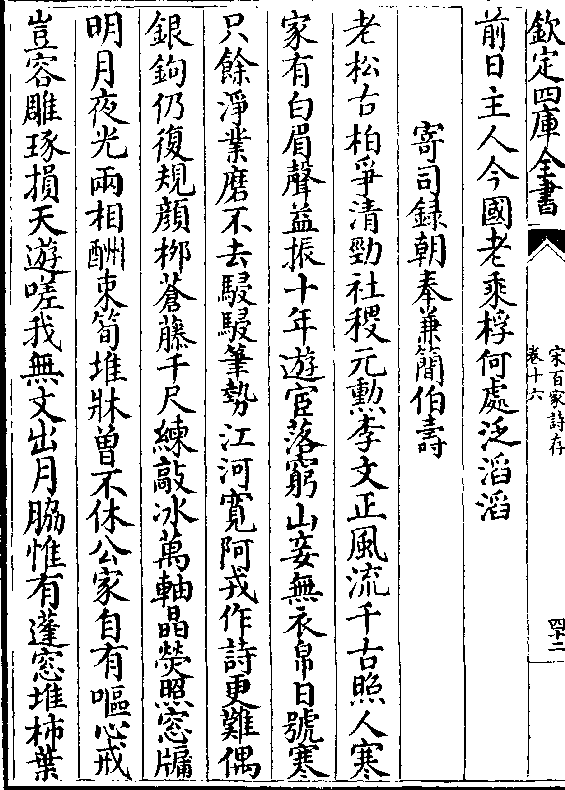 欽定四庫全書
宋百家詩存
卷十六
四十二
前日主人今國老乘桴何處泛滔滔
寄司録朝奉兼簡伯壽
老松古柏爭清勁社稷元勲李文正風流千古照人寒
家有白眉聲益振十年遊宦落窮山妾無衣帛日號寒
只餘淨業磨不去駸駸筆勢江河寛阿戎作詩更難偶
銀鉤仍復規顔栁蒼藤千尺練敲冰萬軸晶熒照窓牖
明月夜光兩相酬束筍堆牀曽不休公家自有嘔心戒
豈容雕琢損天遊嗟我無文出月脇惟有蓬窓堆柿葉